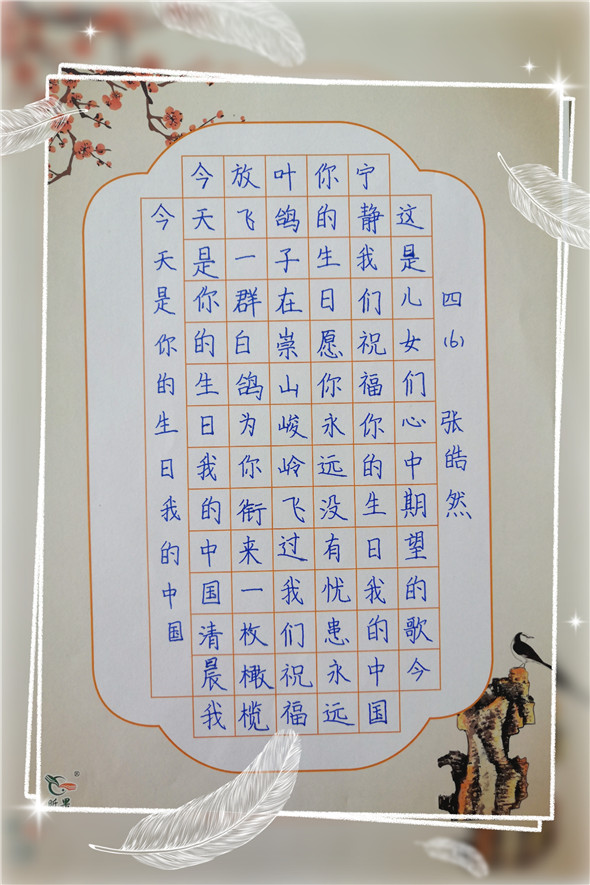 今天是你的生日我的中国
今天是你的生日我的中国清晨我
放飞一群白鸽为你衔来一枚橄榄
叶鸽子在崇山峻岭飞过我们祝福
你的生日愿你永远没有忧患永远
宁静我们祝福你的生日我的中国
这是儿女们心中期望的歌今
四(6) 张皓然